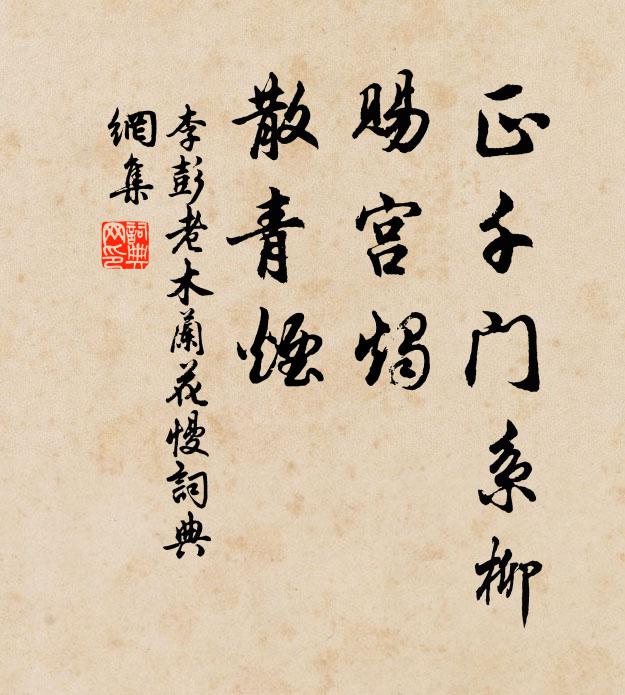 正千门系柳
赐宫烛
散青烟
李彭老木蘭花慢詞典
網集
詞典
网印